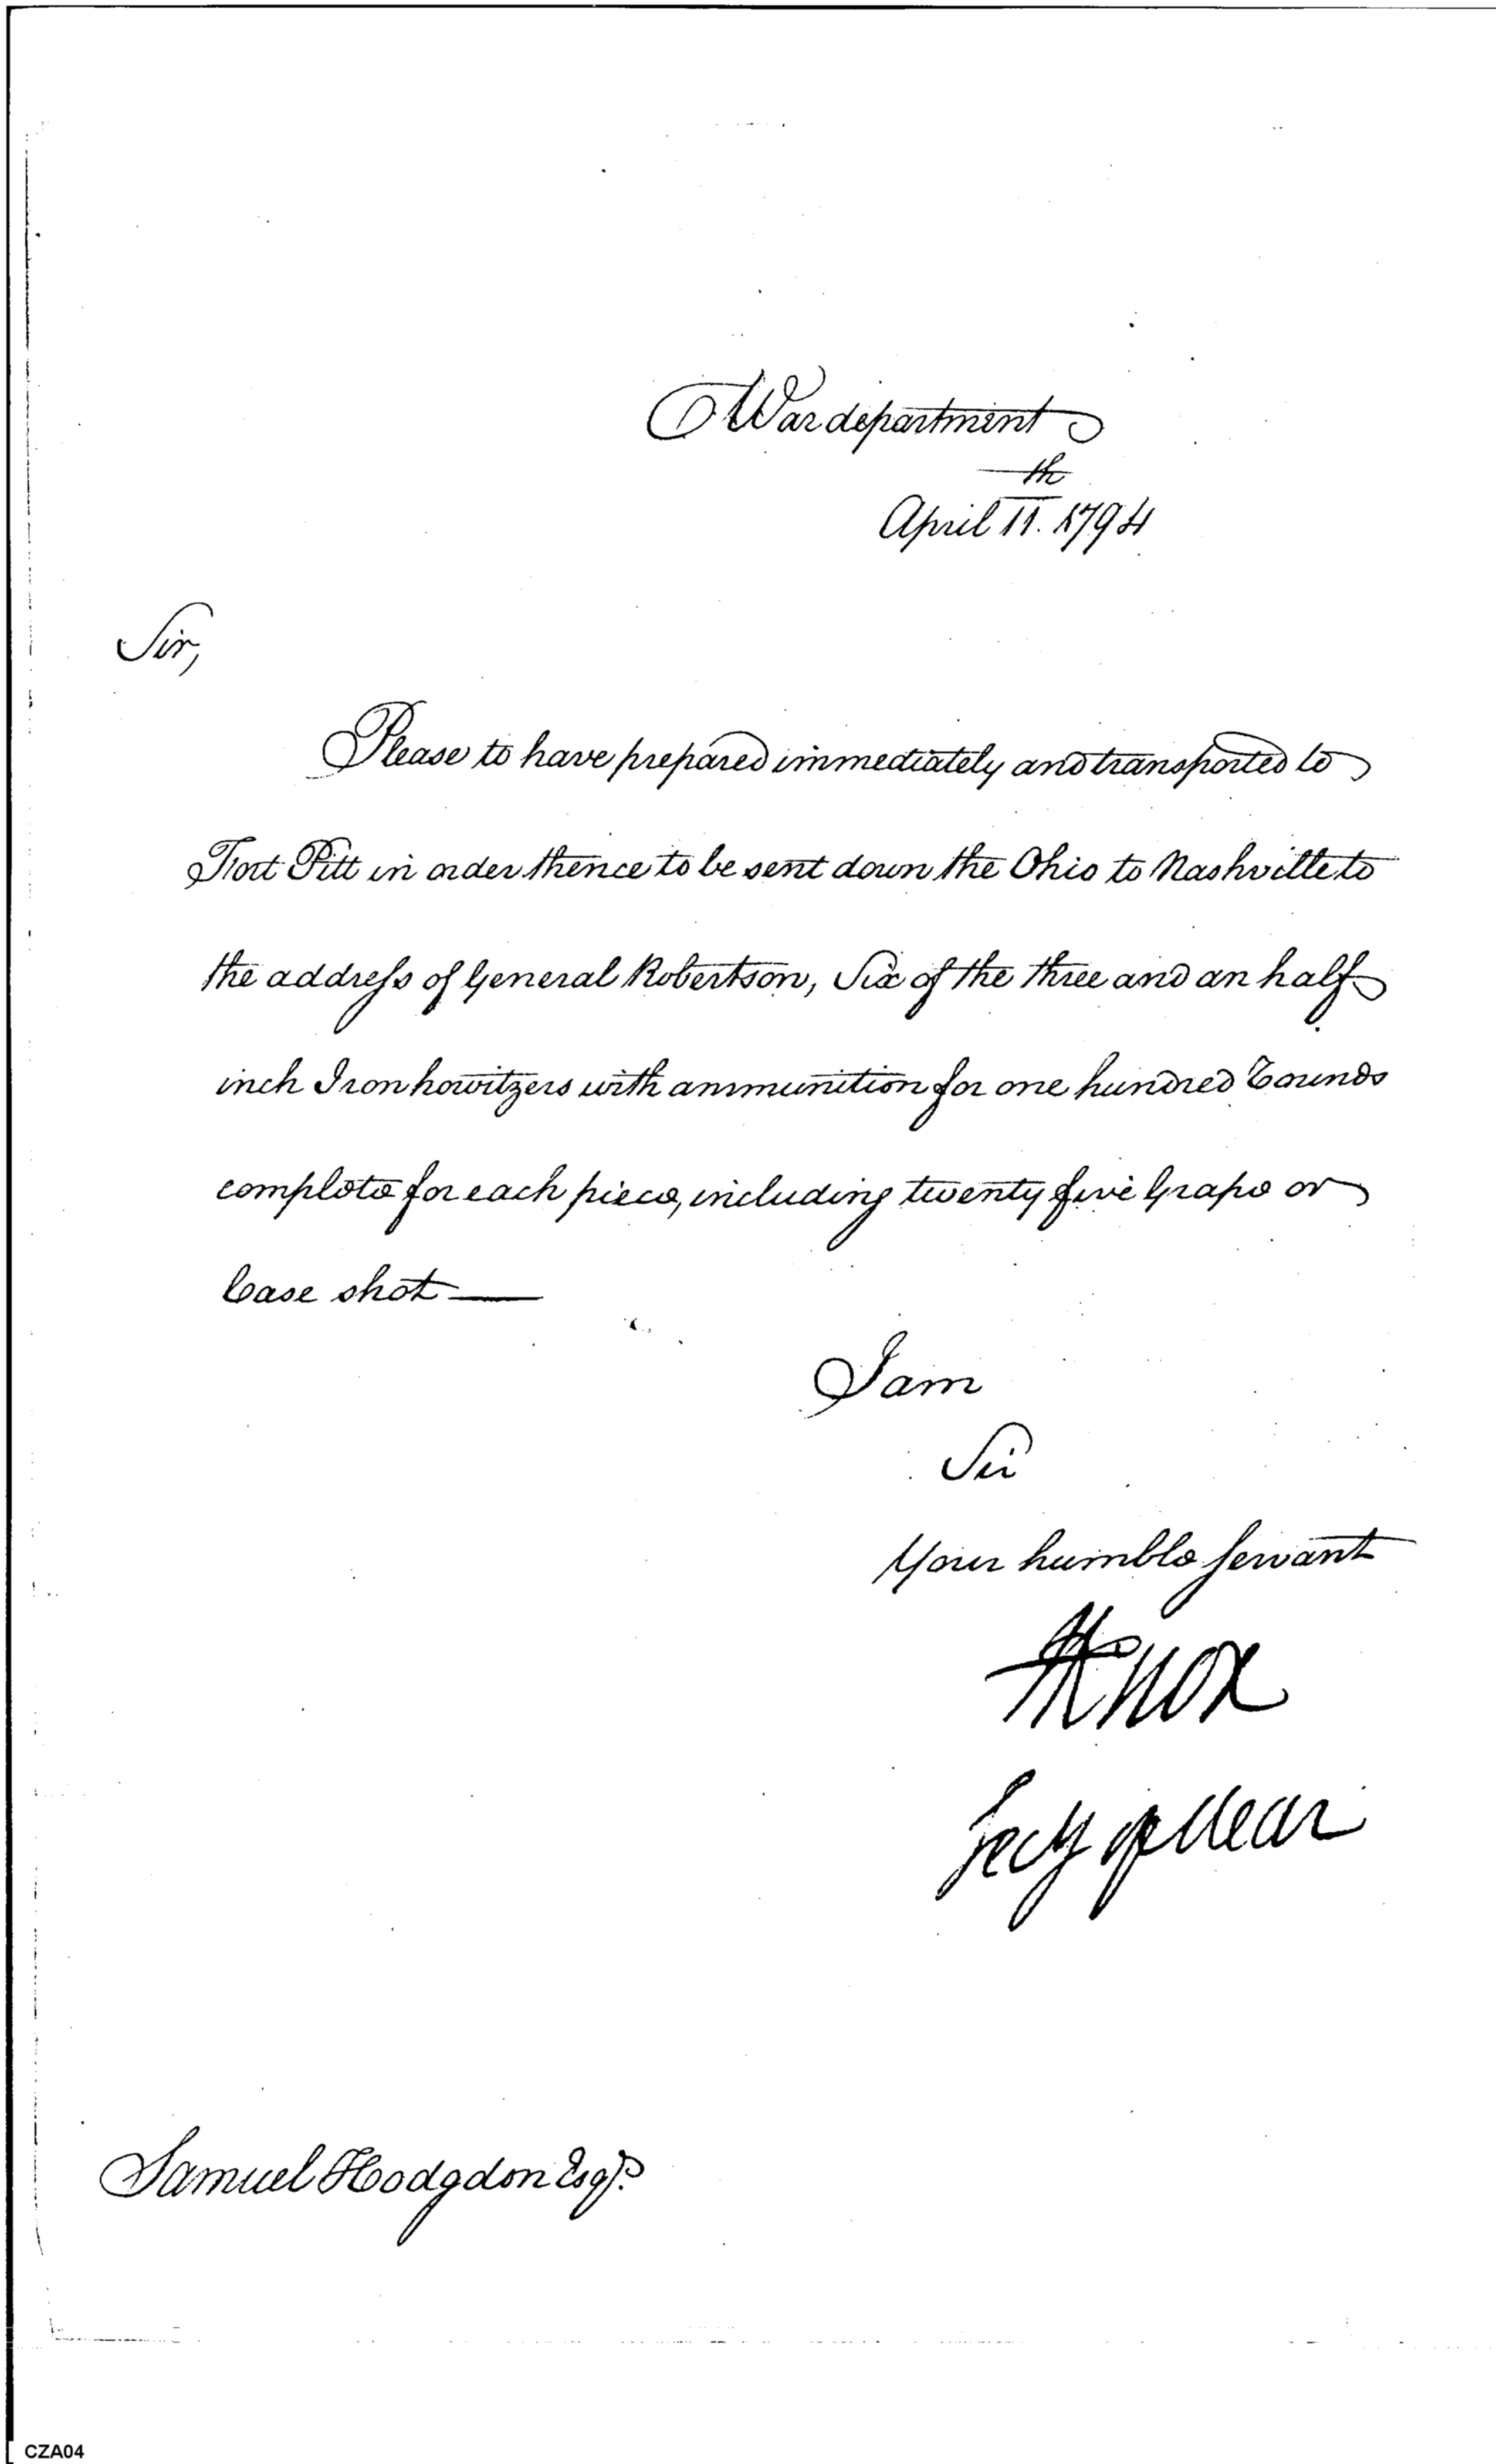 War department
th
April 11. 1794
Sir,
Please to have prepared immediately and transported to
Fort Pitt in order thence to be sent down the Ohio to Nashville to
the address of General Robertson, Six of the three and an half
inch Iron howitzers with ammunition for one hundred rounds
complete for each piece, including twenty five Grape or
Case shot —
I am
Sir
Your humble servant
HKnox
Secy of War
Samuel Hodgdon Esqr.
CZA04